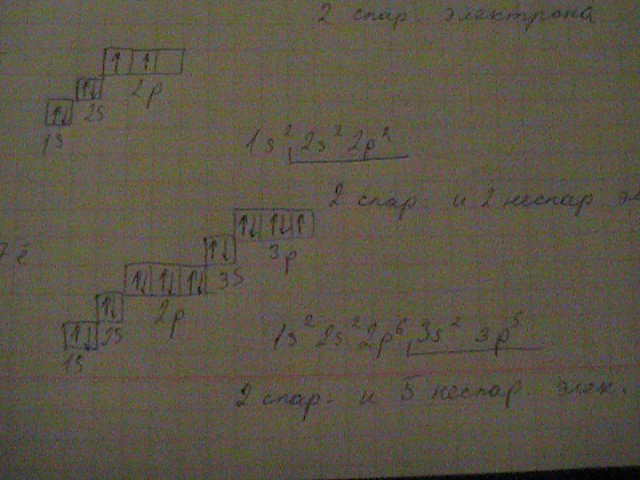 2 спар. электрона
↑ ↑
↑↓ 2p
↑↓ 2s
1s
1s² 2s² 2p²
2 спар и 2 неспар. эл
↑↓ ↑↓ ↑
7 ē ↑↓ 3p
↑↓ ↑↓ ↑↓ 3s
↑↓ 2p
↑↓ 2s
1s
1s² 2s² 2p⁶ 3s² 3p⁵
2 спар. и 5 неспар. элек.